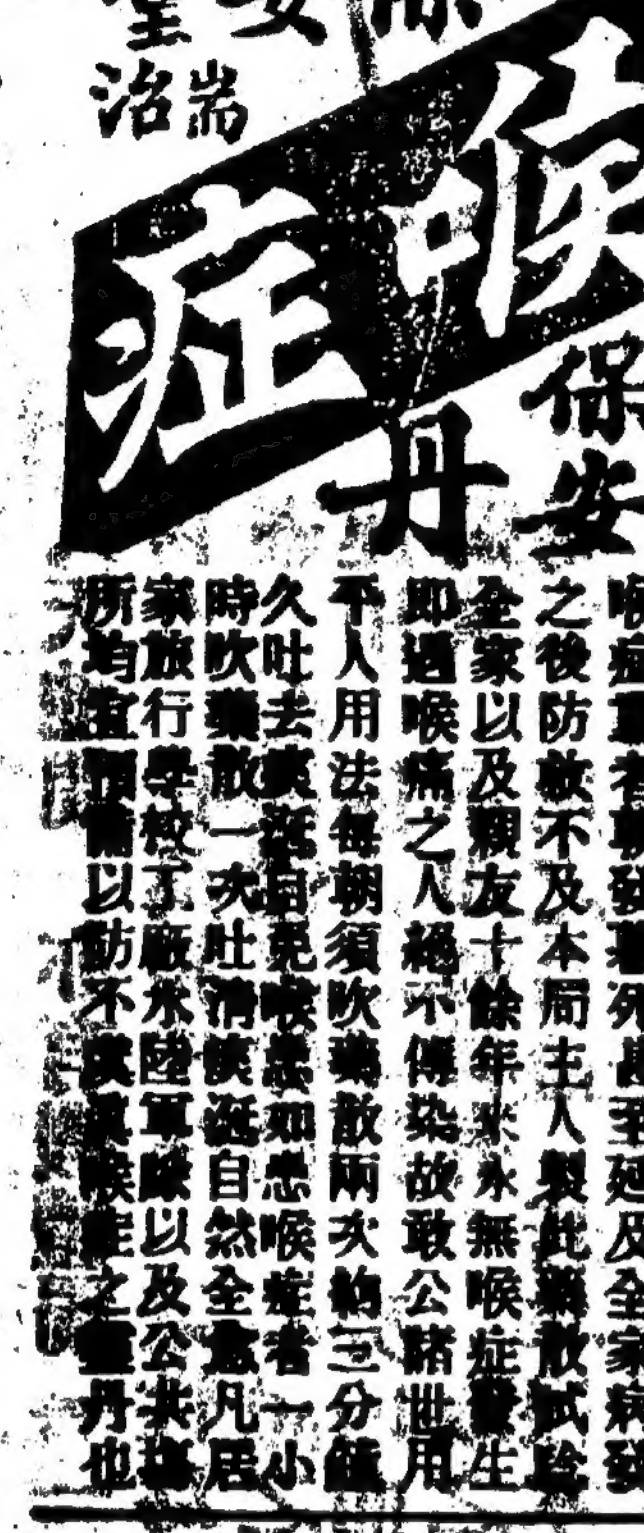 耑治
喉症
保安
丹
喉症重者朝發暮死甚至延及全家病發
之後防救不及本局主人製此藥散試驗
全家以及親友十餘年來永無喉症發生
即遇喉痛之人絕不傳染故敢公諸世用
平人用法每朝須吹藥散兩次約三分鐘
久吐去痰涎自免喉患如患喉症者一小
時吹藥散一次吐清痰涎自然全愈凡居
家旅行學校工廠水陸軍隊以及公共場
所均宜預備以防不虞真喉症之靈丹也